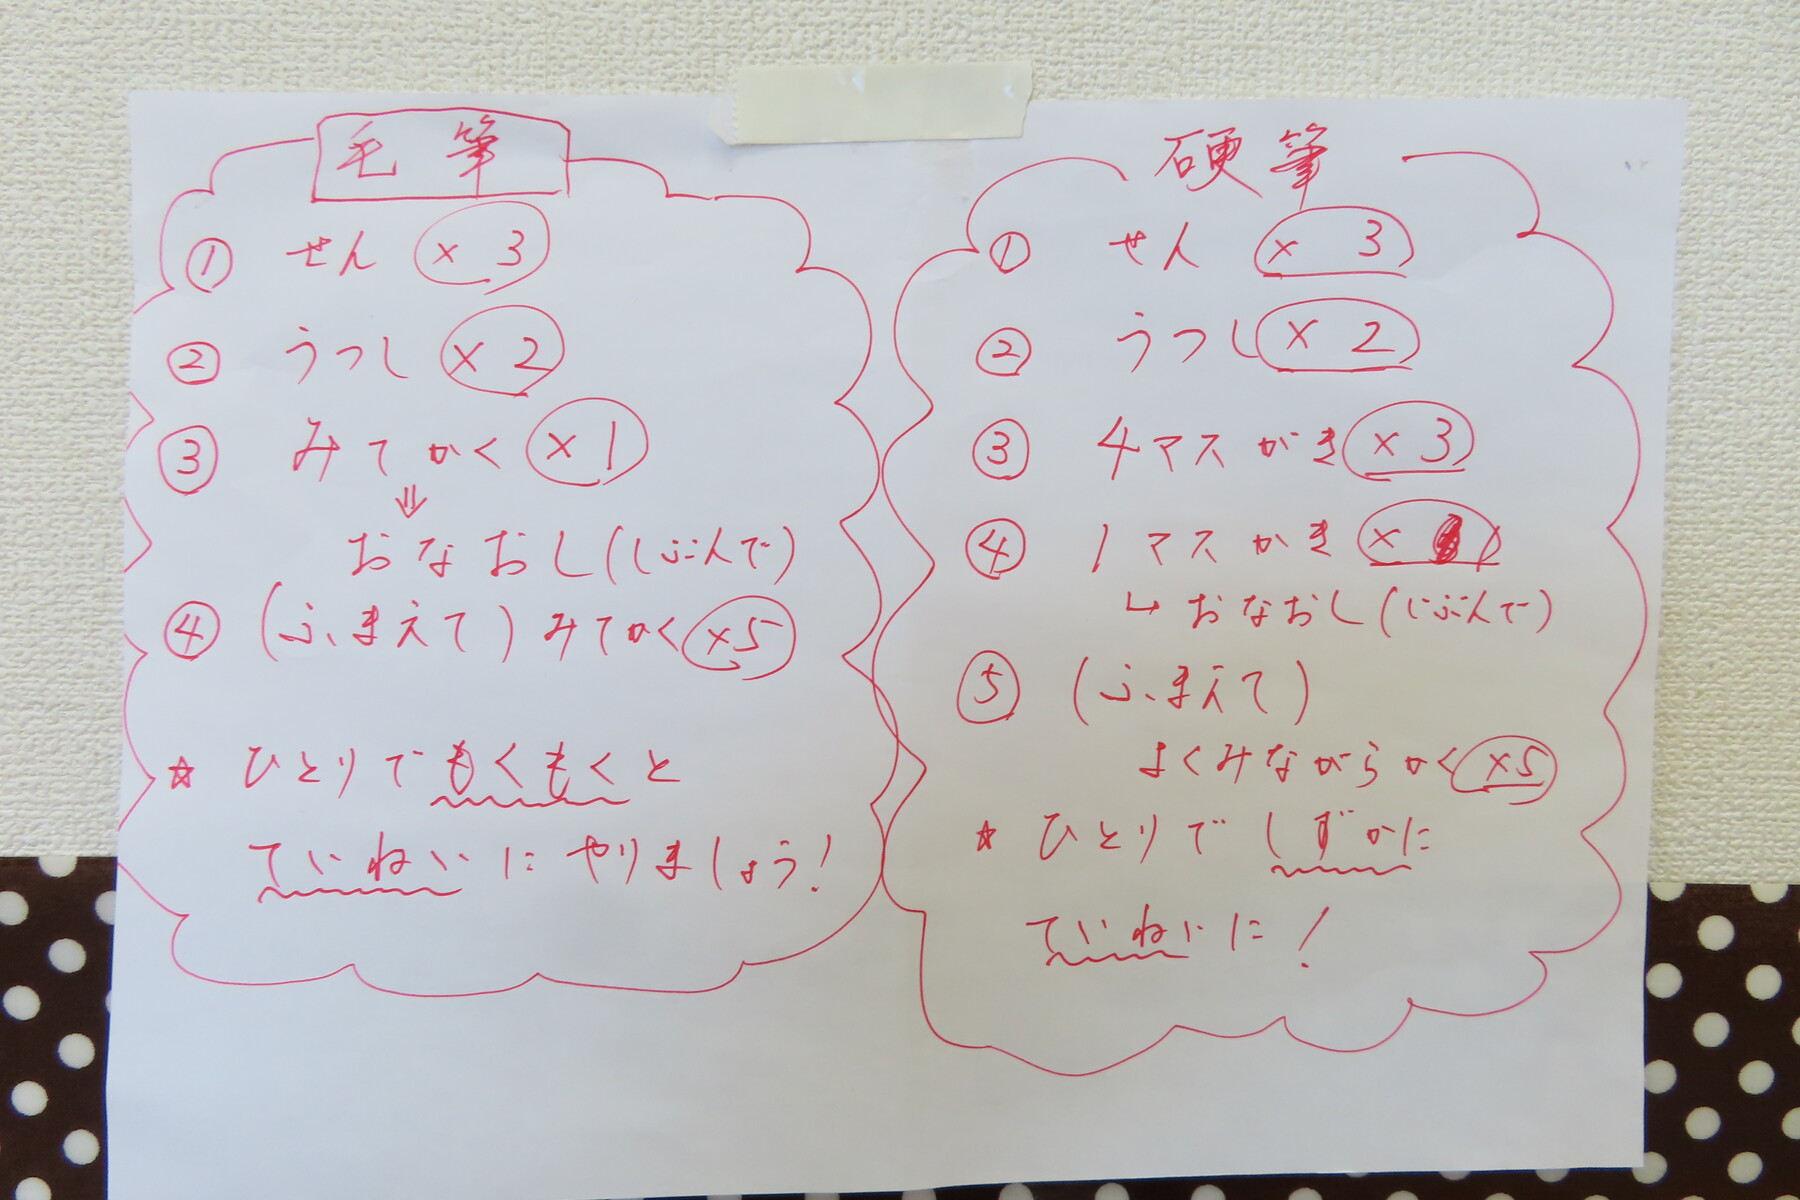 毛筆
① せん ×3
② うつし ×2
③ みてかく ×1
⇓
おなおし(じぶんで)
④ (ふまえて)みてかく ×5
☆ ひとりでもくもくと
ていねいにやりましょう!
硬筆
① せん ×3
② うつし ×2
③ 4マスがき ×3
④ 1マスがき ×1
↳ おなおし(じぶんで)
⑤ (ふまえて)
よくみながらかく ×5
☆ ひとりでしずかに
ていねいに!